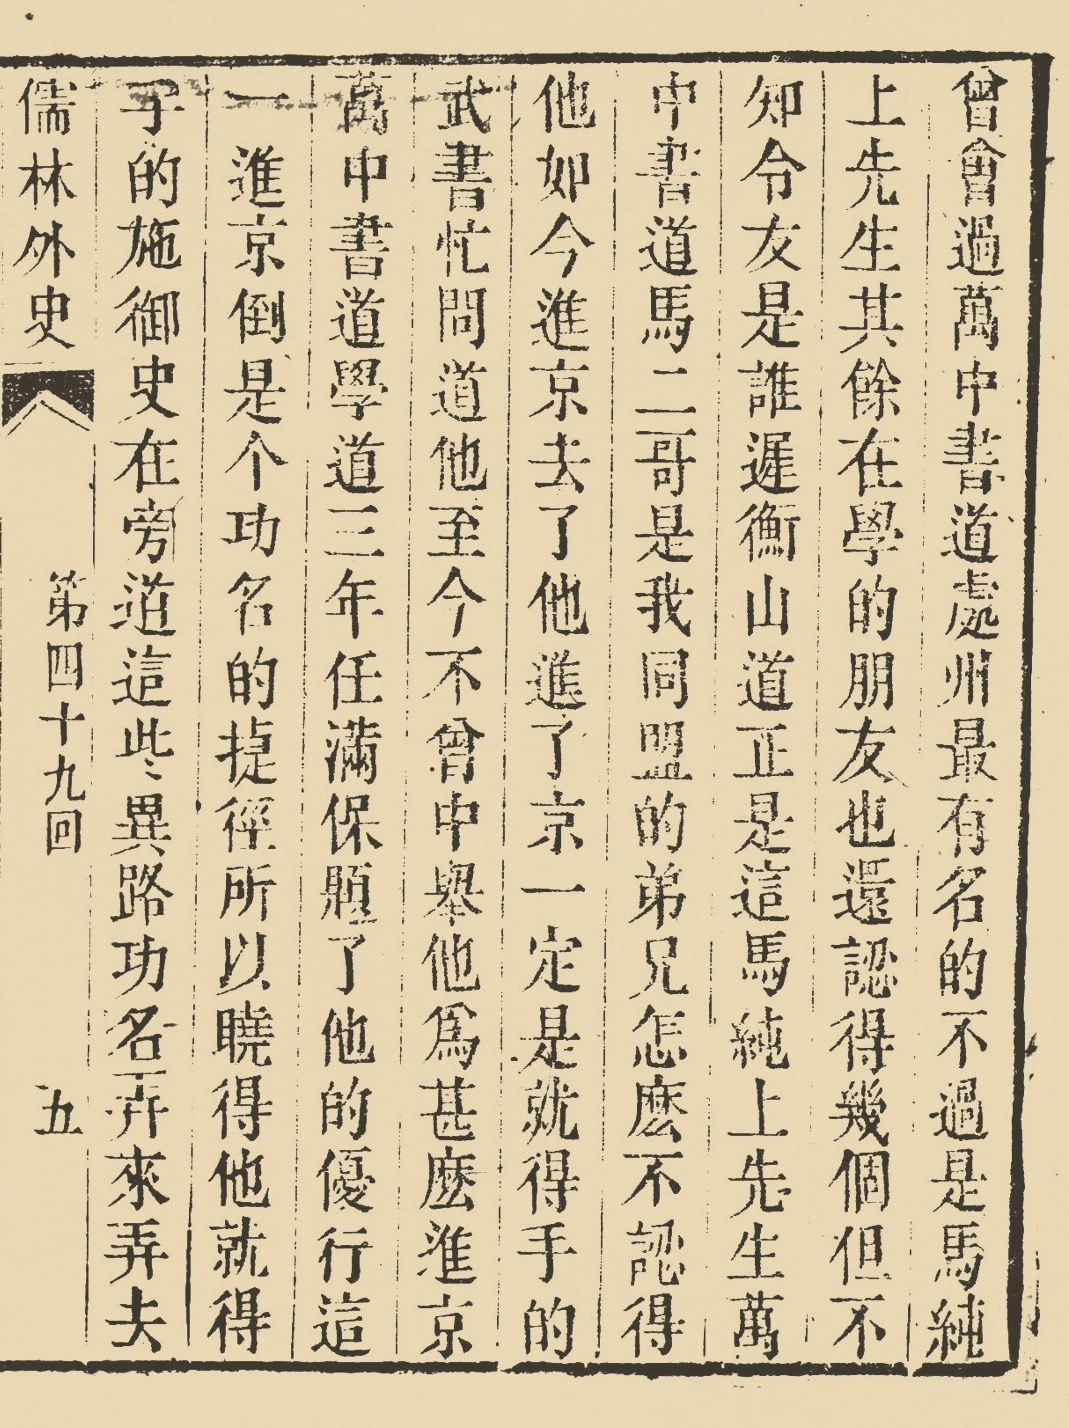 曾會過萬中書道處州最有名的不過是馬純
上先生其餘在學的朋友也還認得幾個但不
知令友是誰遲衡山道正是這馬純上先生萬
中書道馬二哥是我同盟的弟兄怎麽不認得
他如今進京去了他進了京一定是就得手的
武書忙問道他至今不曾中舉他爲甚麽進京
萬中書道學道三年任滿保題了他的優行這
一進京倒是个功名的捷徑所以曉得他就得
手的施御史在旁道這些異路功名弄來弄去
儒林外史 第四十九回 五